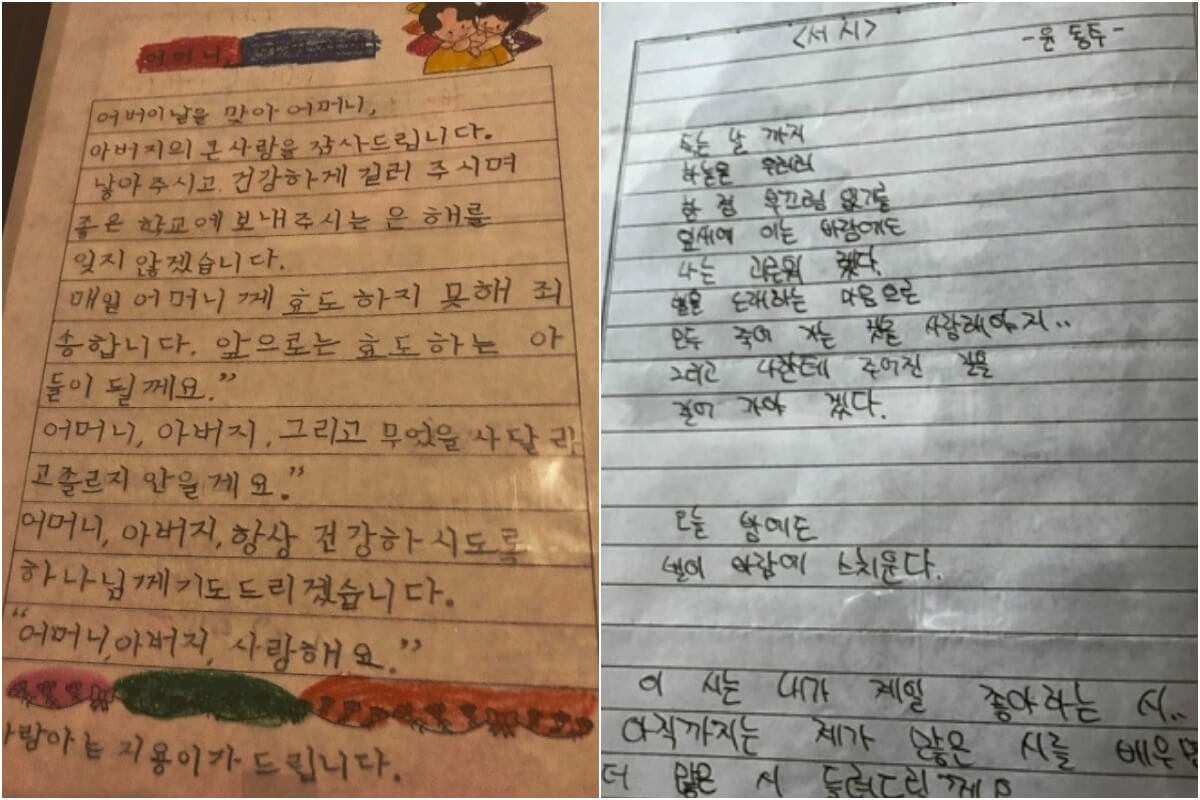 어머니, 아버지께
어버이날을 맞아 어머니,
아버지의 큰 사랑을 감사드립니다.
낳아 주시고 건강하게 길러 주시며
좋은 학교에 보내주시는 은 해를
잊지 않겠습니다.
매일 어머니 께 효도 하지 못해 죄
송합니다. 앞으로는 효도 하는 아
들이 될께요.”
어머니, 아버지, 그리고 무었을 사달 라
고 졸르지 안을게요.”
어머니, 아버지, 항상 건강하시도록
하나님께 기도드리겠습니다.
“어머니, 아버지, 사랑해요.”
지용이가 드립니다.
<서시>
-윤동주-
죽는 날 까지
하늘을 우러러
한 점 부끄럼 없기를
잎새에 이는 바람에도
나는 괴로워 했다.
별을 노래하는 마음으로
모두 죽어 가는 것을 사랑해야지..
그리고 나한테 주어진 길을
걸어 가야 겠다.
오늘 밤에도
별이 바람에 스치운다.
이 시는 내가 제일 좋아하는 시..
아직까지는 제가 많은 시를 배우면
더 많은 시 들려드릴께요